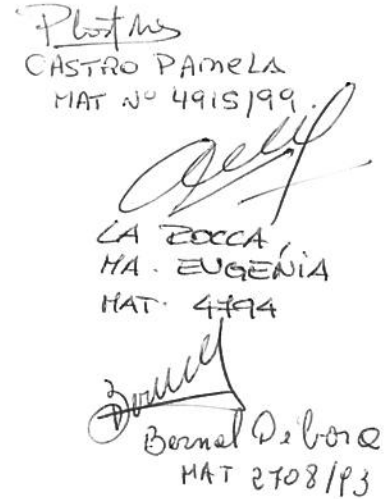 CASTRO PAMELA
MAT Nº 4915/99.
LA ROCCA,
MA. EUGENIA
MAT. 4794
Bernal Débora
MAT 2708/93